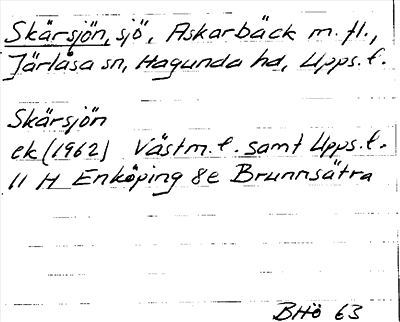 Skärsjön, sjö, Askarbäck m. fl.,
Järlåsa sn, Hagunda hd, Upps. l.
Skärsjön
ek (1962) Västm. l. samt Upps. l.
11 H Enköping 8e Brunnsätra
BHö 63